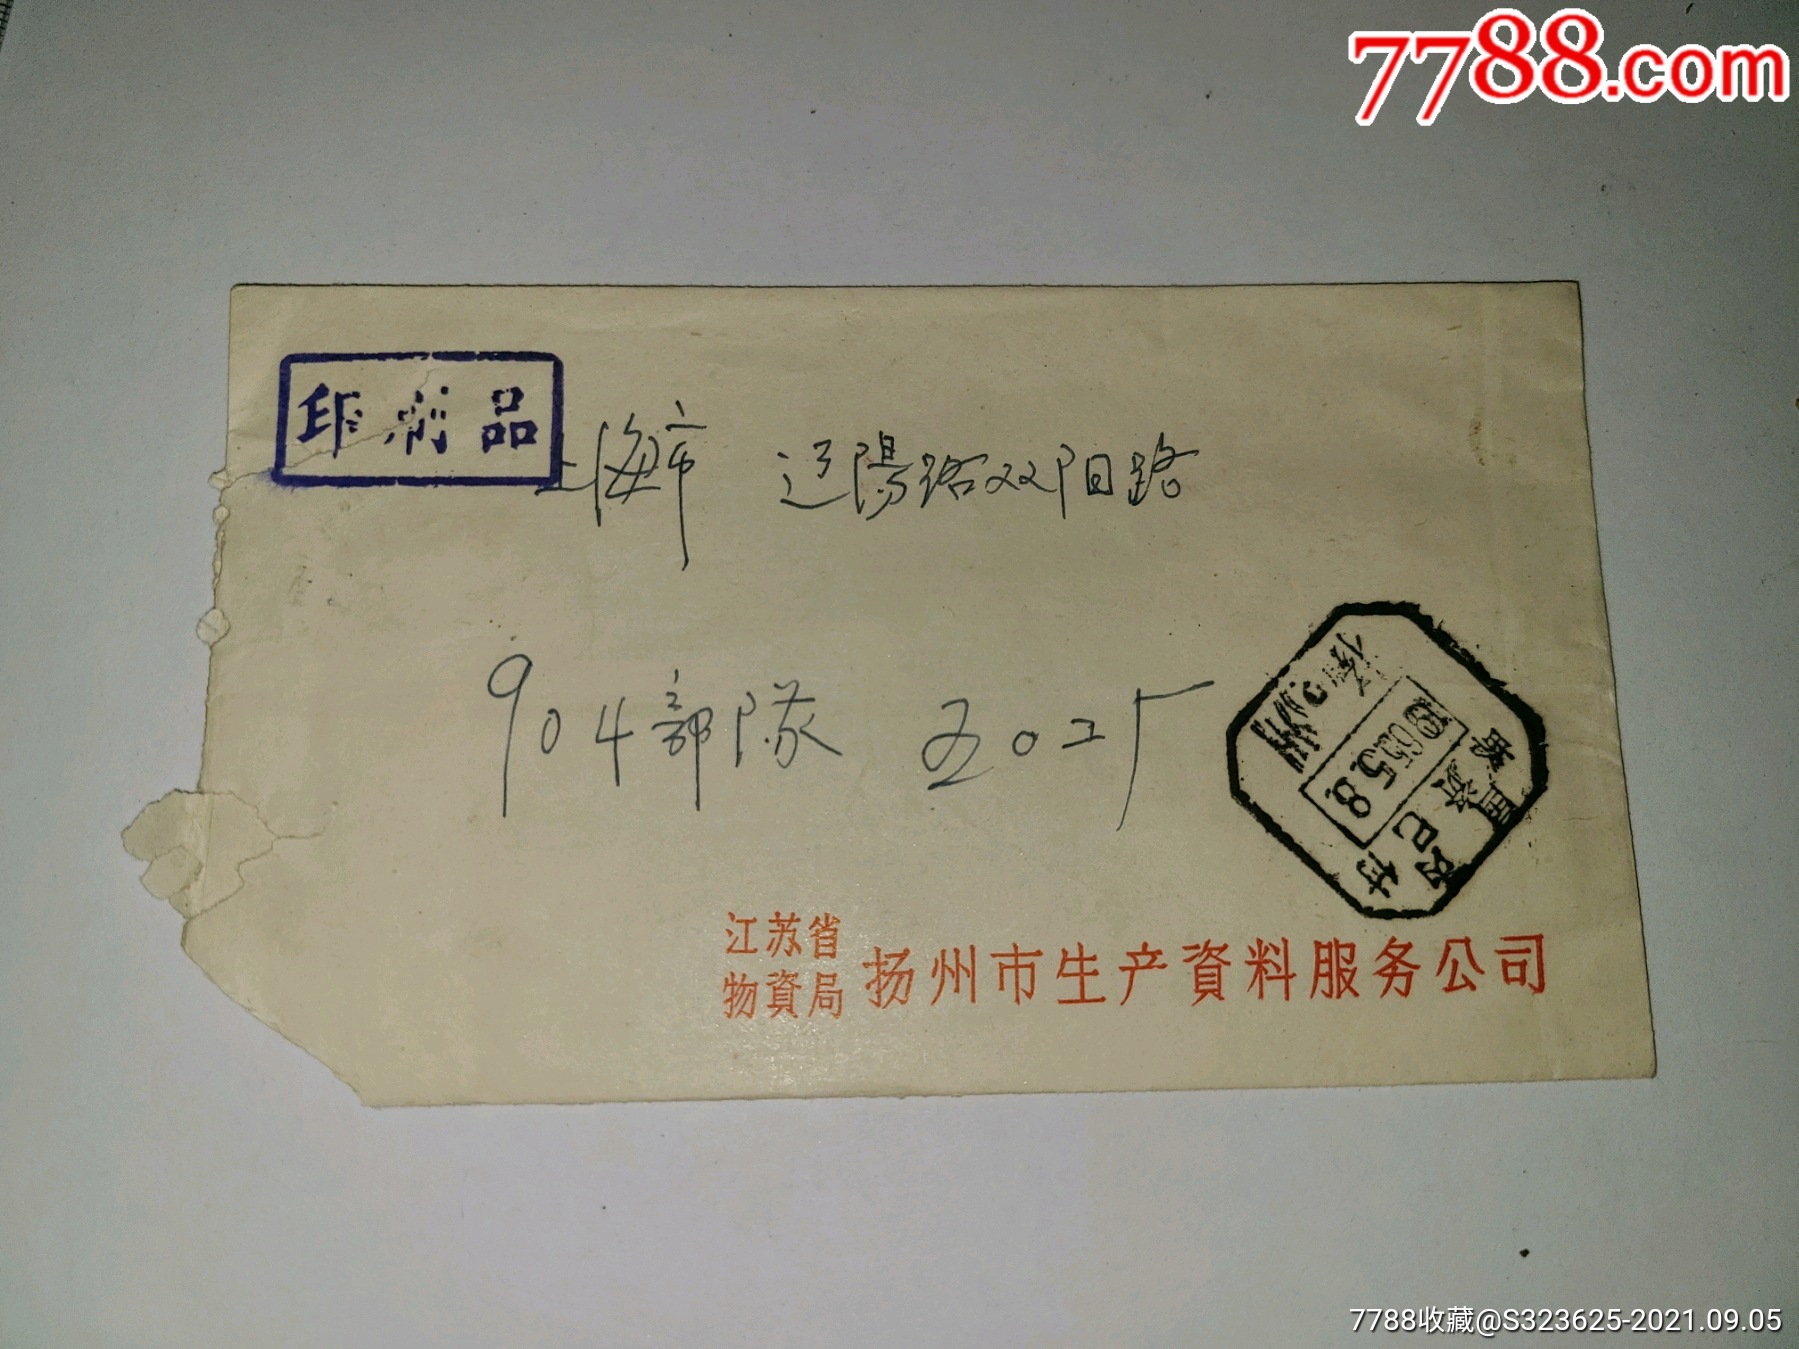 7788.com
印刷品
上海市 辽陽路双阳路
904部隊 五〇二厂
扬州
1965.5.8
国内邮资已付
江苏省
物資局
扬州市生产資料服务公司
7788收藏@S323625-2021.09.05